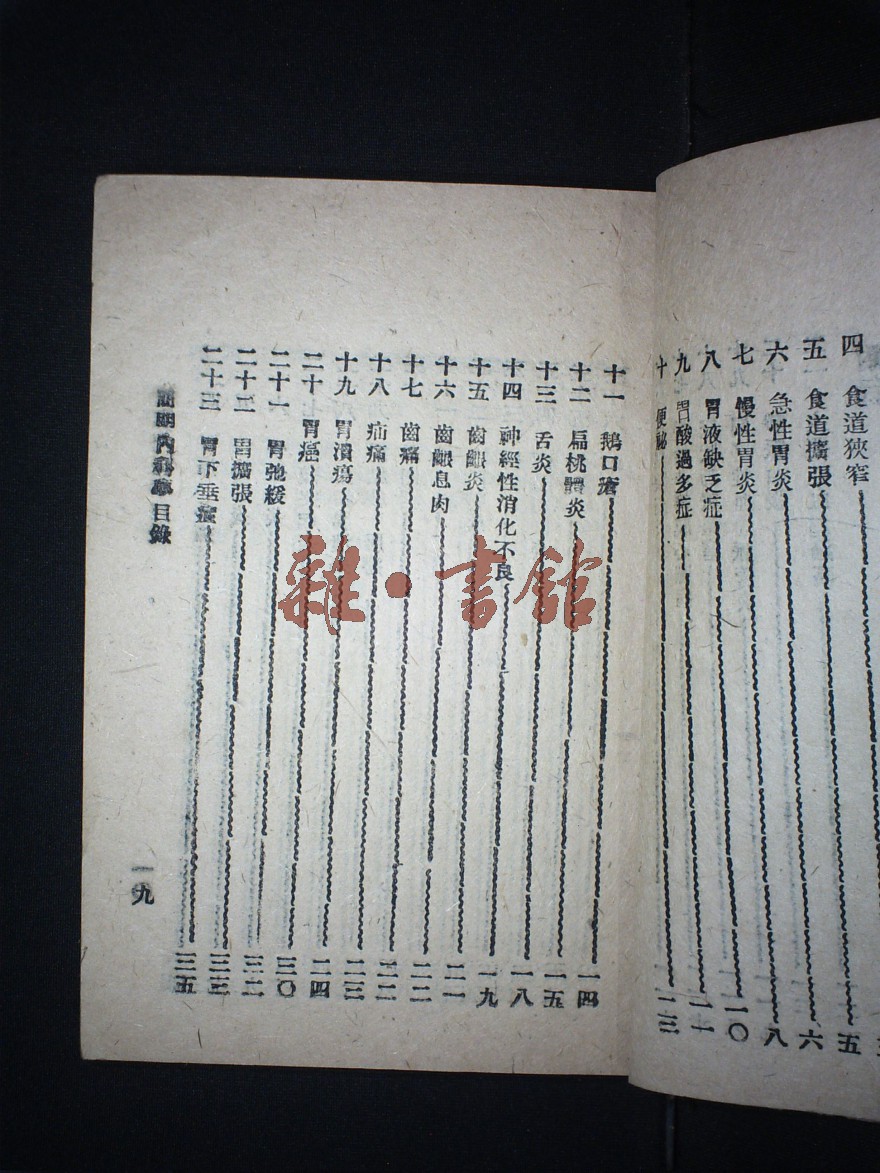 四　食道狹窄　五
五　食道擴張　六
六　急性胃炎　八
七　慢性胃炎　一〇
八　胃液缺乏症　一一
九　胃酸過多症
十　便秘　一三
十一　鵝口瘡　一四
十二　扁桃體炎　一五
十三　舌炎　一八
十四　神經性消化不良　一九
十五　齒齦炎　二一
十六　齒齦息肉　二二
十七　齒痛　二二
十八　疝痛　二三
十九　胃潰瘍　二四
二十　胃癌　三〇
二十一　胃弛緩　三二
二十二　胃擴張　三三
二十三　胃下垂症　三五
簡明內科學　目錄
一九
雜·書館